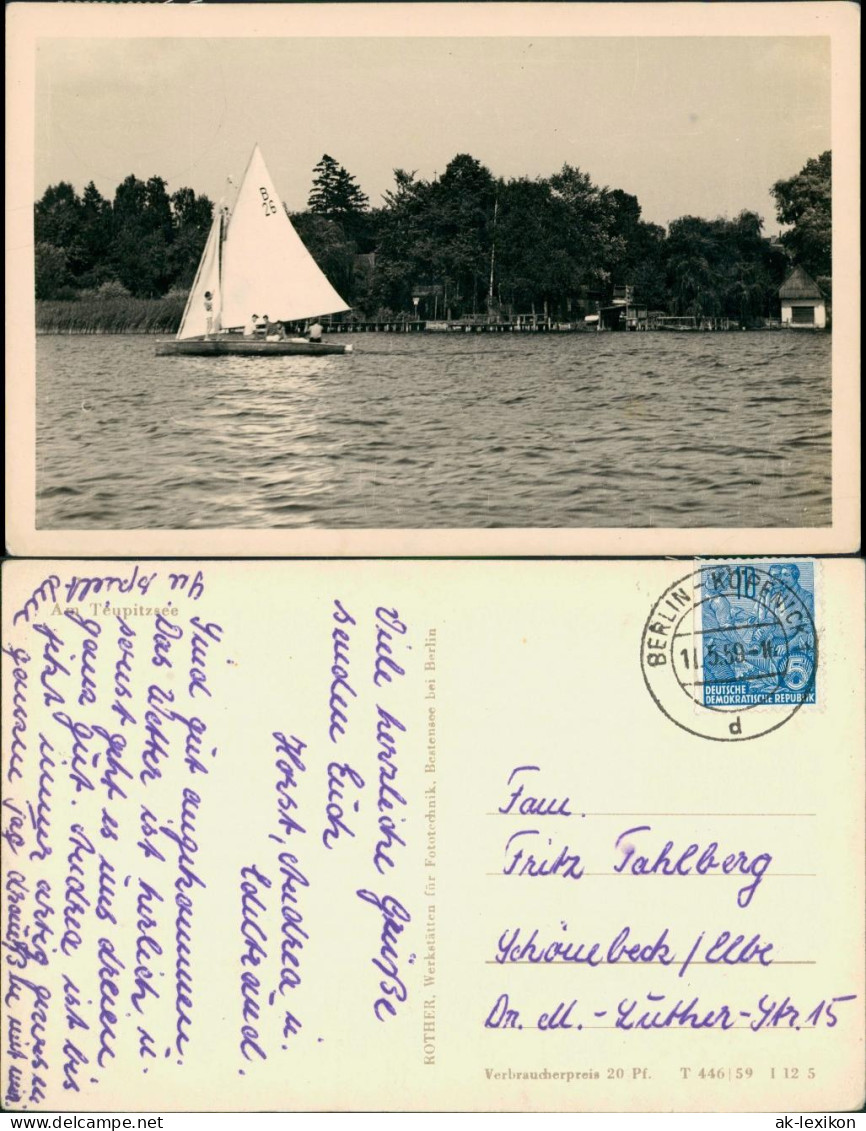 Am Teupitzsee
Viele herzliche Grüße
senden Euch
Horst, Andrea u.
Edeltraud.
Sind gut angekommen.
Das Wetter ist herlich u.
sonst geht es uns dreien
ganz gut. Andrea ist bis
jetzt immer artig gewesen
ganzen Tag draußen
zu spielt
ROTHER, Werkstätten für Fototechnik, Bestensee bei Berlin
BERLIN-KÖPENICK
11.5.59
d
10
5
DEUTSCHE
DEMOKRATISCHE REPUBLIK
Fam.
Fritz Fahlberg
Schönebeck/Elbe
Dr. M.-Luther-Str. 15
Verbraucherpreis 20 Pf. T 446|59 I 12 5
ak-lexikon